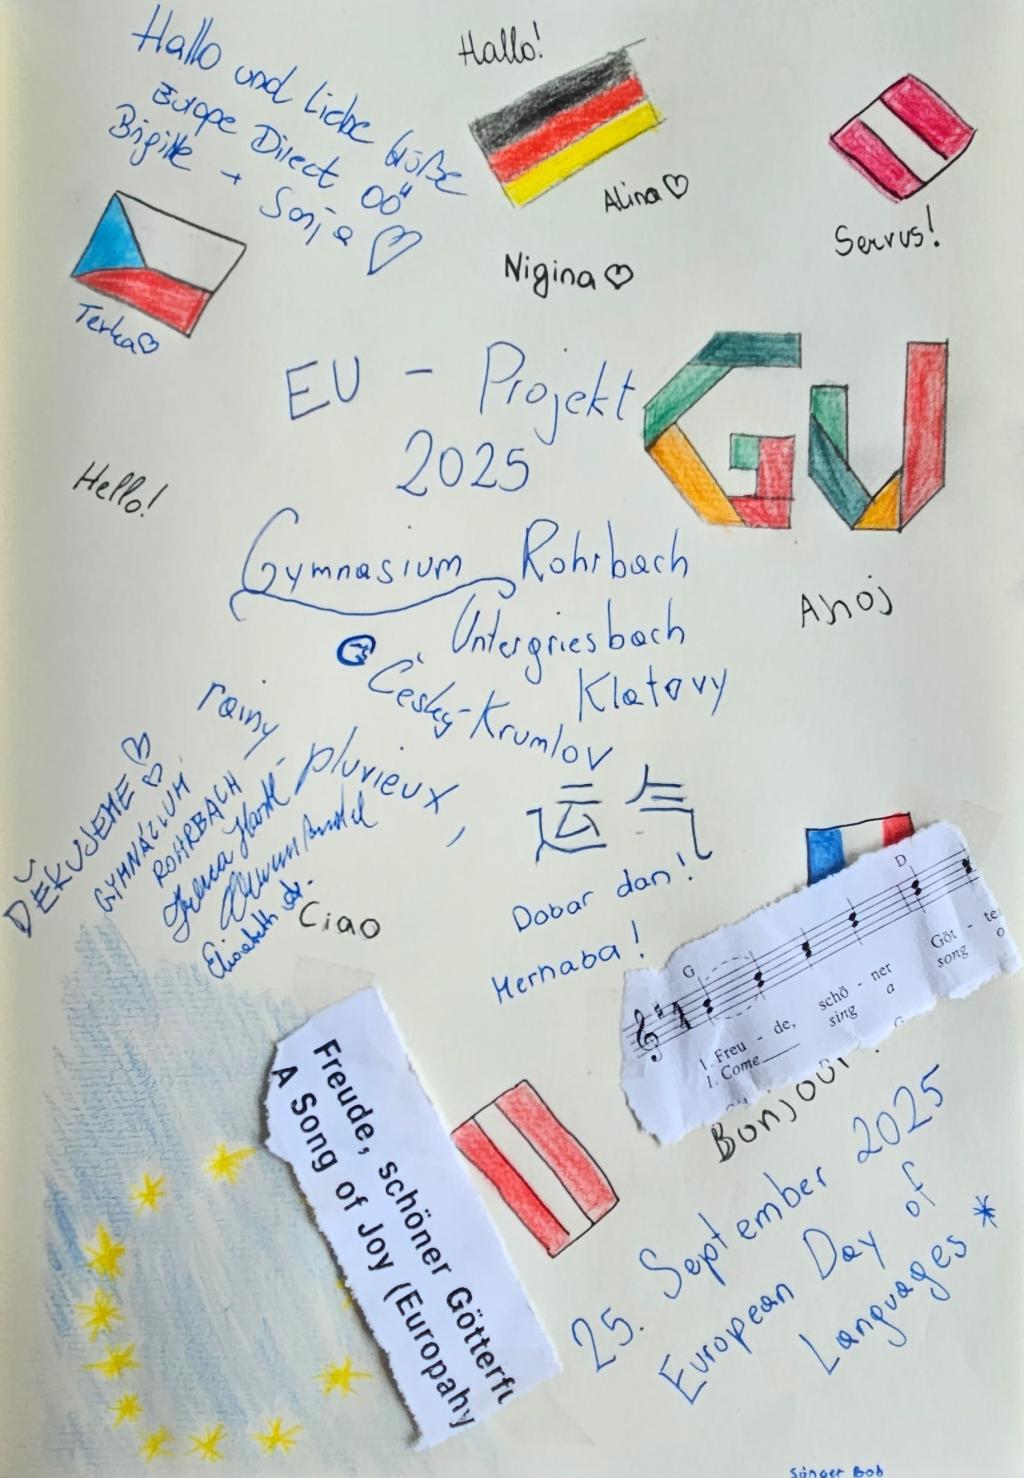 Hallo und liebe Grüße
Europe Direct OÖ
Brigitte + Sonja
Hallo!
Alina
Nigina
Servus!
Terka
EU - Projekt
2025
GU
Hello!
Gymnasium Rohrbach
Untergriesbach
Česky-Krumlov
Klatovy
Ahoj
rainy
pluvieux,
DĚKUJEME
GYMNÁZIUM
ROHRBACH
Elisabeth
Ciao
运气
Dobar dan!
Mernaba!
G
D
1. Freu - de, schö - ner Göt - te
1. Come sing a song o
G
Bonjour
Freude, schöner Götterfu
A Song of Joy (Europahy
25. September 2025
European Day of
Languages *
Sänger Bob